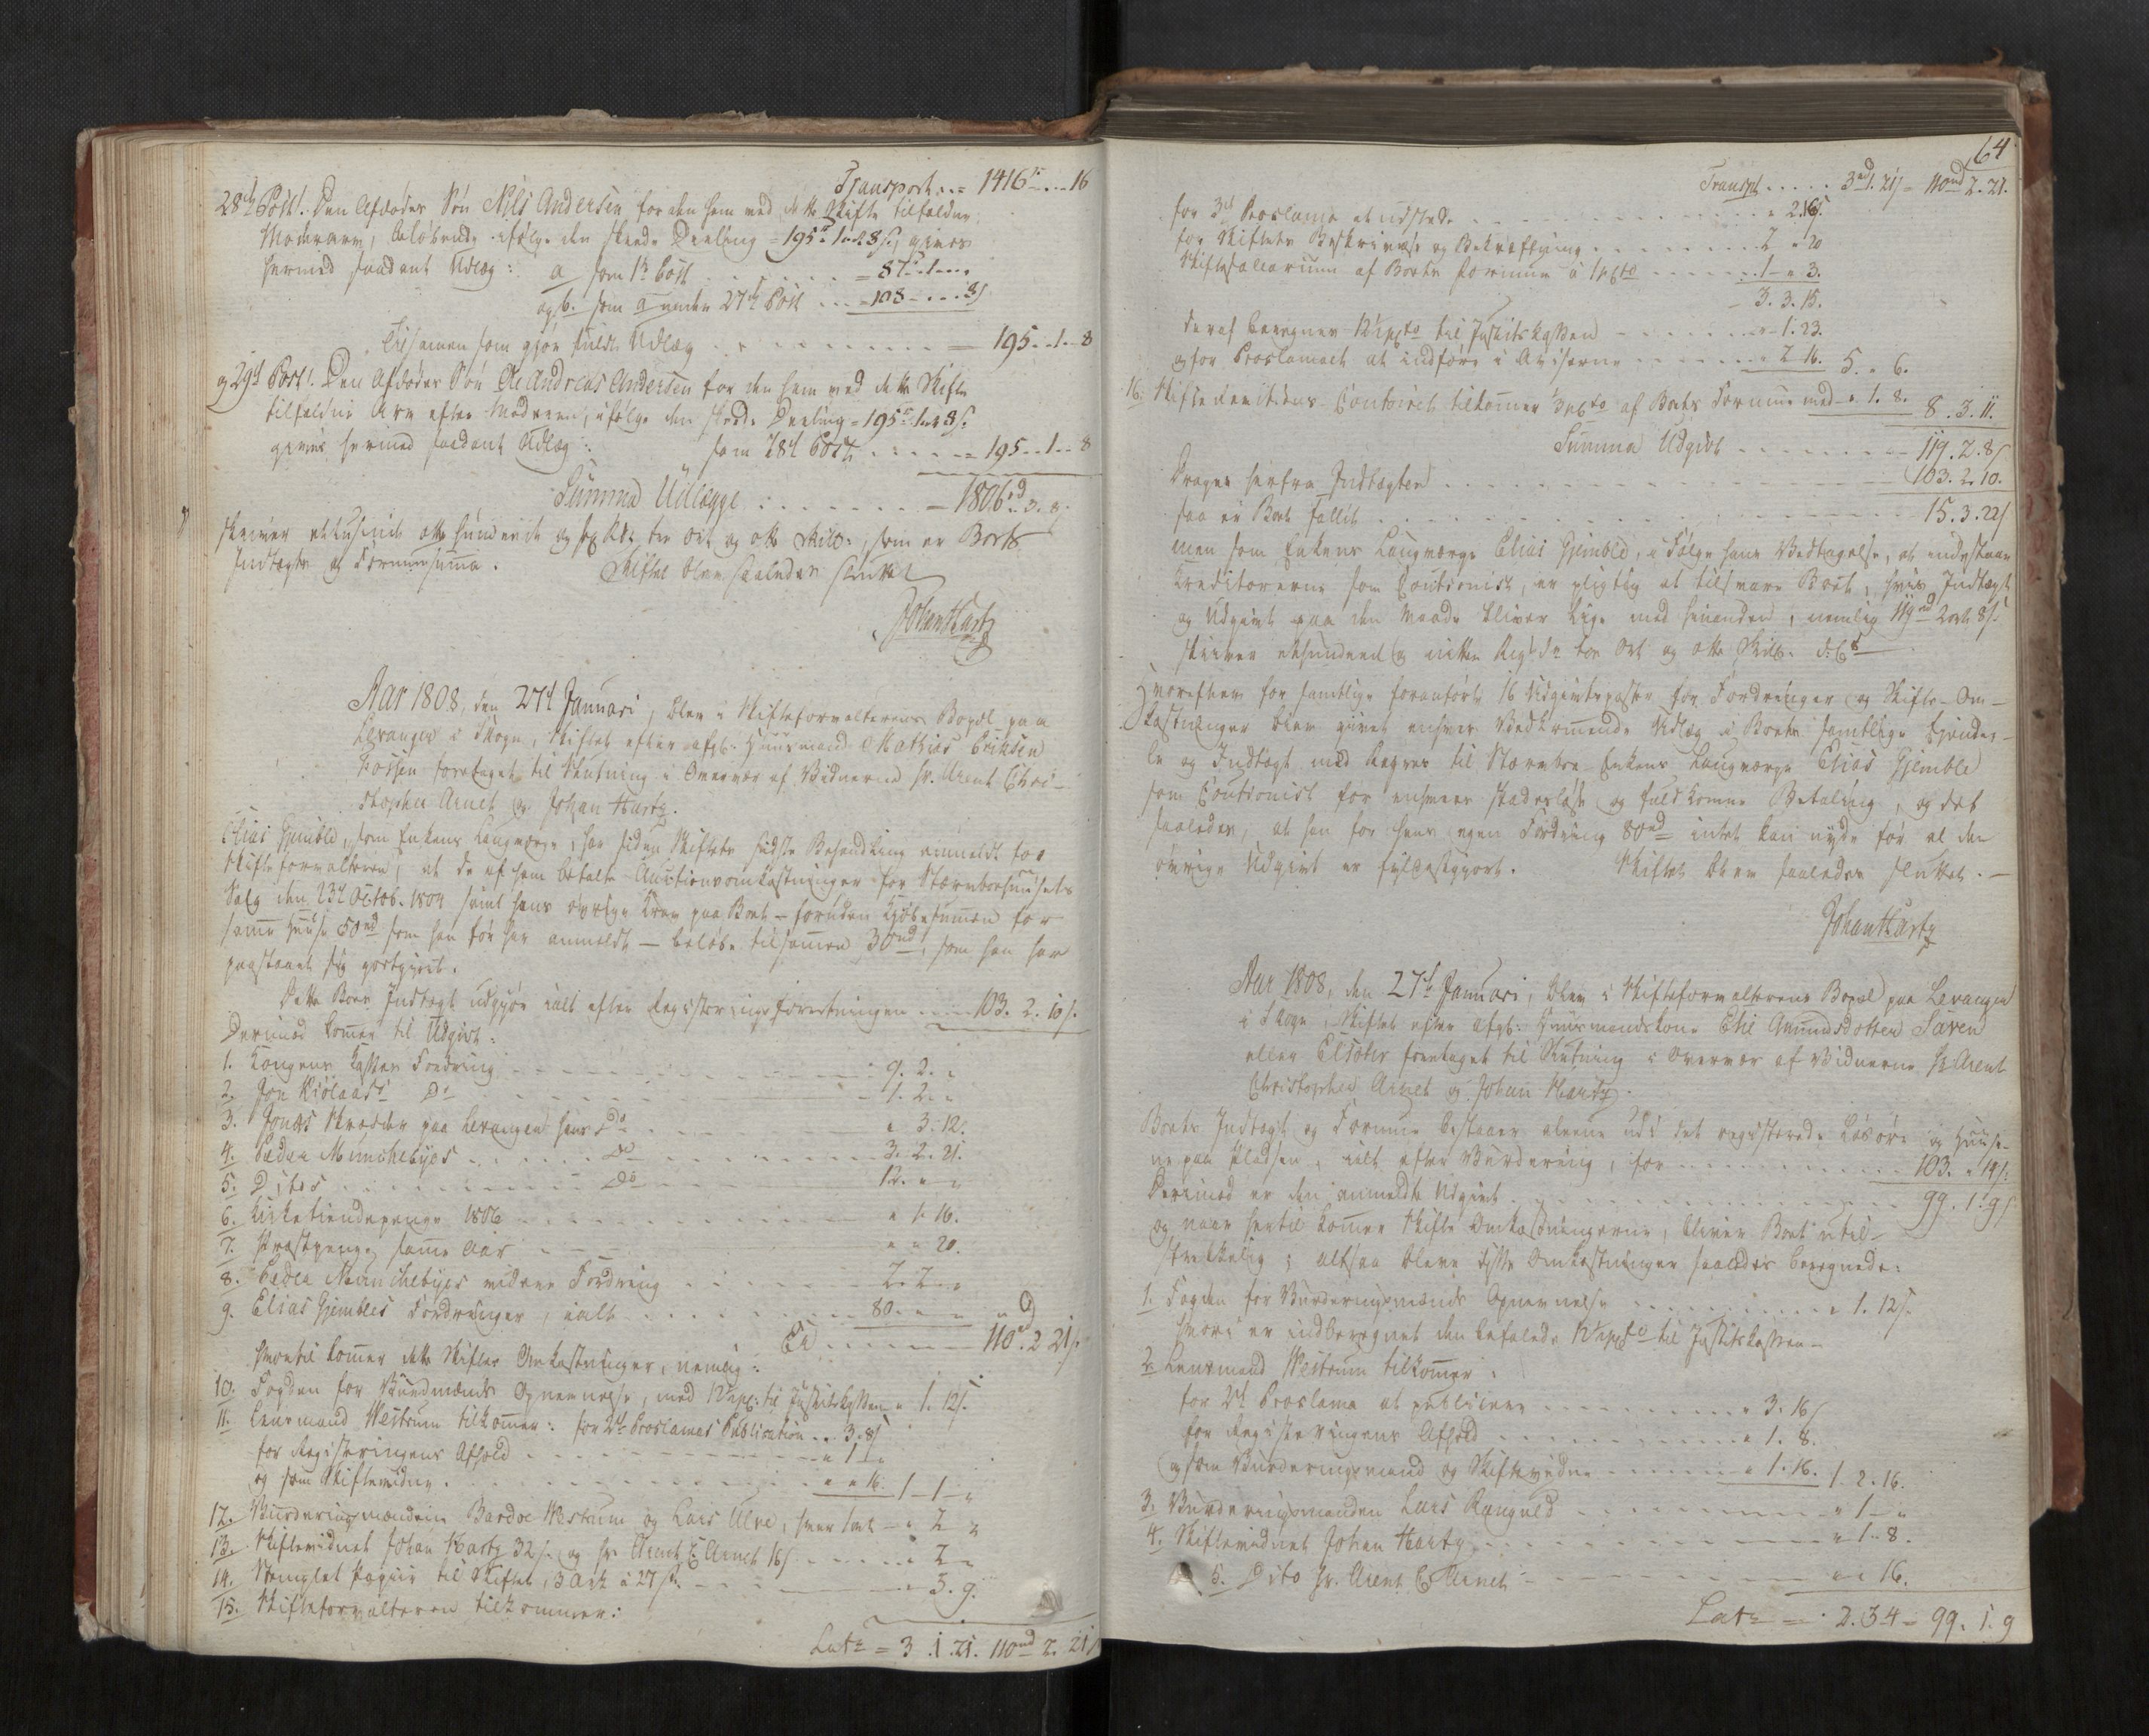 Transport ... = 1416 rd ... 16
28de Post. Den Afdødes Søn Nils Andersen for den ham ved dette Skifte tilfaldne
Mødrearv, beløbende ifølge den skeede Deeling = 195 rd 1 ort 8 s, gives
hermed saadant Udlæg: a som 1te Post ..... = 87 - 1 - "
og b. som a under 27de Post ... = 108 - ... 8 s
Tilsamen som gjør fuldt Udlæg ........ = 195 - 1 - 8
og 29de Post. Den Afdødes Søn Ole Andreas Andersen for den ham ved dette Skifte
tilfaldne Arv efter Moderen, ifølge den skeede Deeling = 195 rd 1 ort 8 s
gives hermed saadant Udlæg: som 28de Post ..... = 195 - 1 - 8
Summa Udlægget : ....... = 1806 rd 3. 8.
skriver et tusinde otte hundrede og sex Rdr tre Ort og otte Skill:, som er Boets
Indtægts og Formuesumma. Skiftet blev saaledes sluttet
Johan Hartz
Aar 1808, den 27de Januari, blev i Skifteforvalterens Bopæl paa
Levanger i Skogn, Skiftet efter afg: Huusmand Mathias Eriksen
Fossen foretaget til Slutning i Overvær af Vidnerne Hr. Arent Chri-
stopher Arnet og Johan Hartz.
Elias Gjemble, som Enkens Laugværge, har siden Skiftets sidste Behandling anmeldt for
Skifteforvalteren, at de af ham betalte Auctionsomkostninger for Stærvboehuusets
Salg den 23de Octob. 1804 samt hans øvrige Krav paa Boet - foruden Kjøbesummen for
samme Huuse 50 rd som han før har anmeldt - beløbe tilsamen 30 rd, som han har
paastaaet sig godtgjort.
Dette Boes Indtægt udgjør ialt efter Registeringsforretningen ..... 103. 2. 10 s.
Derimod komer til Udgivt:
1. Kongens Kasses Fordring ........ 9. 2. "
2. Jon Kiølaas's Do ........ 1. 2. "
3. Jonas Skræder paa Levanger hans Do ...... " 3. 12.
4. Peder Münchebyes ..... Do ...... 3. 2. 21.
5. Ditos ......... Do ...... 12. " "
6. Kirketiendepenge 1806 ........ " 1. 16.
7. Præstpenge, same Aar ........ " " 20.
8. Peder Münchebyes videre Fordring ...... 2. 2. "
9. Elias Gjembles Fordringer, ialt ...... 80. " "
Er ...... 110 rd 2 21 s.
hvortil komer dette Skiftes Omkostninger, nemlig:
10. Fogden for Vurdmænds Opnævnelse, med 12½ pC: til Justitskassen " 1. 12 s.
11. Lensmand Westrum tilkomer: for 2de Proclamas Publication .. " 3. 8 s
for Registeringens Afhold ........ " 1 "
og som Skiftevidne. ....... " " 16. 1 - 1 - "
12. Vurderingsmændene Bardoe Westrum og Lars Ulve, hver 1 ort - " 2 "
13. Skiftevidnet Johan Hartz 32 s. og Hr. Arent C. Arnet 16 s. ..... " 2 "
14. Stemplet Papiir til Skiftet, 3 Ark à 27 s. ...... " 3. 9.
15. Skifteforvalteren tilkommer:
Latr = 3 . 1 . 21. 110 rd 2. 21 s
64
Transpt ..... 3 rd 1. 21 s = 110 rd 2. 21.
for 3de Proclama at udstede ......... " 2. 16 s.
for Skiftets Beskrivelse og Bekræftning ...... 2 " 20
Skiftesalarium af Boets Formue à 1 pCto ...... 1 - " 3.
3. 3. 15.
deraf beregnes 12½ pCto til Justitskassen ..... " 1. 23.
og for Proclamaet at indføre i Aviserne ..... " 2 16. 5. " 6.
16. Skifte Revisions Contoiret tilkomer 1/3 pCto af Boets Formue med " 1. 8. 8. 3. 11.
Summa Udgivt ....... 119. 2. 8 s
Drages herfra Indtægten ......... 103. 2. 10.
saa er Boet fallit ......... 15. 3. 22 s
men som Enkens Laugværge Elias Gjemble, i Følge hans Vedtagelse, at indestaae
Creditorerne som Cautionist, er pligtig at tilsvare Boet, hvis Indtægt
og Udgivt paa den Maade bliver lige med hinanden, nemlig 119 rd 2 ort 8 s.
skriver et hundrede og nitten Rigsdr toe Ort og otte Skill. d. C.
Hvorefter for samtlige foranførte 16 Udgivtsposter for Fordringer og Skifte-Om-
kostninger blev givet enhver Vedkommende Udlæg i Boets samtlige Eiendee-
le og Indtægt med Regres til Stærvboe Enkens Laugværge Elias Gjemble
som Cautionist for enhvers skadesløse og fuldkomne Betaling, og det
saaledes, at han for hans egen Fordring 80 rd intet kan nyde før al den
øvrige Udgivt er fyldestgjort. Skiftet blev saaledes sluttet. -
Johan Hartz
Aar 1808, den 27de Januari, blev i Skifteforvalterens Bopæl paa Levanger
i Skogn, Skiftet efter afg: Huusmandskone Eli Amundsdotter Saxen
eller Elisæter foretaget til Slutning i Overvær af Vidnerne Hr. Arent
Christopher Arnet og Johan Hartz.
Boets Indtægt og Formue bestaaer alene udi det registerede Løsøre og Huuse-
ne paa Pladsen, ialt efter Vurdering, for ......... 103. " 14 s.
Derimod er den anmeldte Udgivt ......... 99. 1. 9 s
og naar hertil komer Skifte Omkostningerne, bliver Boet util-
strækkelig; altsaa bleve disse Omkostninger saaledes beregnede:
1. Fogden for Vurderingsmænds Opnævnelse ........ " 1. 12 s.
hvori er indberegnet den befalede 12½ pCto til Justitskassen -
2. Lensmand Westrum tilkomer:
for 2de Proclama at publicere ........ " 3. 16 s
for Registeringens Afhold ........ " 1. 8.
og som Vurderingsmand og Skiftevidne ..... " 1. 16. 1. 2. 16.
3. Vurderingsmanden Lars Ranguld ....... " 1 - "
4. Skiftevidnet Johan Hartz ........ " 1. 8.
5. Dito Hr. Arent C. Arnet ....... " " 16.
Latr = . 2. 3 4 - 99. 1. 9